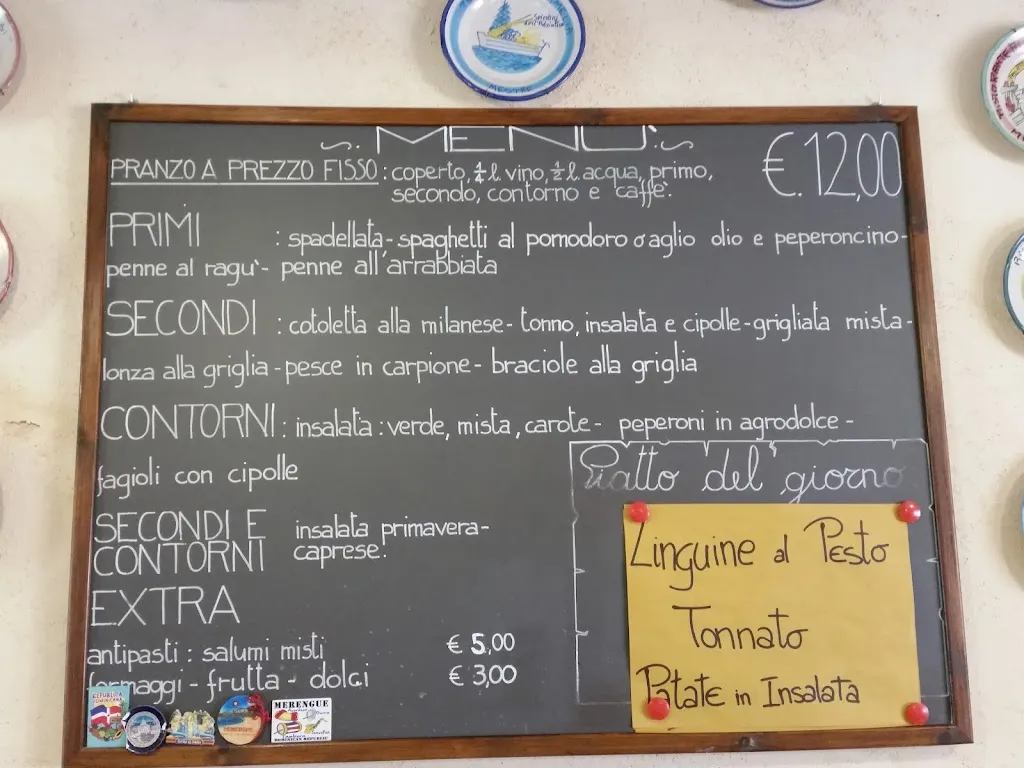 MESTRE
MENÙ
PRANZO A PREZZO FISSO: coperto, ¼ l. vino, ½ l. acqua, primo,
secondo, contorno e caffè.
€. 12,00
PRIMI : spadellata - spaghetti al pomodoro o aglio olio e peperoncino -
penne al ragù - penne all'arrabbiata
SECONDI : cotoletta alla milanese - tonno, insalata e cipolle - grigliata mista -
lonza alla griglia - pesce in carpione - braciole alla griglia
CONTORNI: insalata: verde, mista, carote - peperoni in agrodolce -
fagioli con cipolle
SECONDI E CONTORNI
insalata primavera -
caprese.
EXTRA
antipasti: salumi misti € 5,00
formaggi - frutta - dolci € 3,00
Piatto del giorno
Linguine al Pesto
Tonnato
Patate in Insalata
REPUBLICA
DOMINICANA
MERENGUE
DOMINICAN REPUBLIC